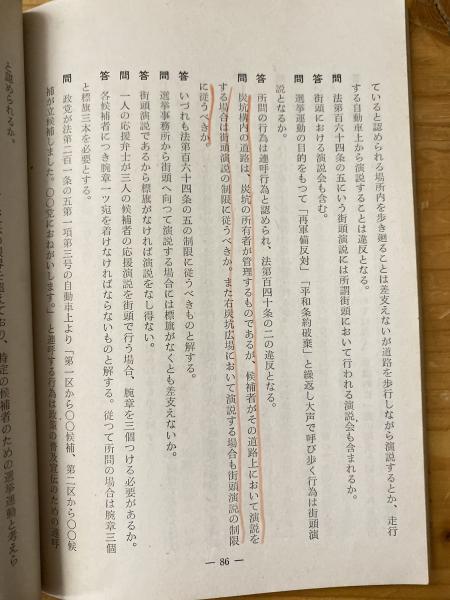 ていると認められる場所内を歩き廻ることは差支えないが道路を歩行しながら演説するとか、走行
する自動車上から演説することは違反となる。
問 法第百六十四条の五にいう街頭演説には所謂街頭において行われる演説会も含まれるか。
答 街頭における演説会も含む。
問 選挙運動の目的をもつて「再軍備反対」「平和条約破棄」と繰返し大声で呼び歩く行為は街頭演
説となるか。
答 所問の行為は連呼行為と認められ、法第百四十条の二の違反となる。
問 炭坑構内の道路は、炭坑の所有者が管理するものであるが、候補者がその道路上において演説を
する場合は街頭演説の制限に従うべきか。また右炭坑広場において演説する場合も街頭演説の制限
に従うべきか。
答 いづれも法第百六十四条の五の制限に従うべきものと解する。
問 選挙事務所から街頭へ向つて演説する場合には標旗がなくとも差支えないか。
答 街頭演説であるから標旗がなければ演説をなし得ない。
問 一人の応援弁士が三人の候補者の応援演説を街頭で行う場合、腕章を三個つける必要があるか。
答 各候補者につき腕章一ツ宛を着けなければならないものと解する。従つて所問の場合は腕章三個
と標旗三本を必要とする。
問 政党が法第二百一条の五第一項第三号の自動車上より「第一区から〇〇候補、第二区から〇〇候
補が立候補しました。〇〇党におねがいします。」と連呼する行為は政策の普及宣伝のための連呼
と認められるか。
特定の候補者のための選挙運動と考えら
— 86 —